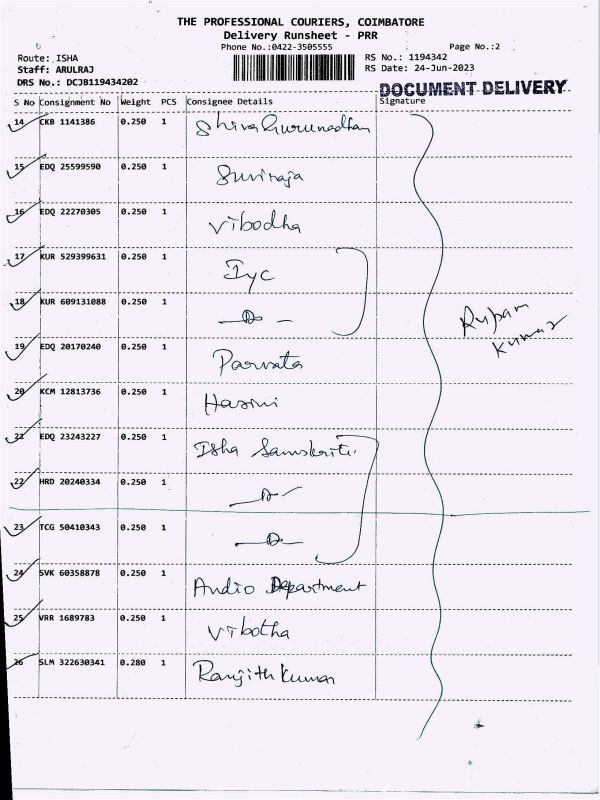 THE PROFESSIONAL COURIERS, COIMBATORE
Delivery Runsheet - PRR
Phone No.:0422-3505555 Page No.:2
Route: ISHA RS No.: 1194342
Staff: ARULRAJ RS Date: 24-Jun-2023
DRS No.: DCJB119434202
DOCUMENT DELIVERY
S No Consignment No Weight PCS Consignee Details Signature
14 CKB 1141386 0.250 1 Shiva Gurunadhan
15 EDQ 25599590 0.250 1 Suviraja
16 EDQ 22270305 0.250 1 Vibodha
17 KUR 529399631 0.250 1 Iyc
18 KUR 609131088 0.250 1 -Do-
Rupam
Kumar
19 EDQ 20170240 0.250 1 Parvata
20 KCM 12813736 0.250 1 Hasini
21 EDQ 23243227 0.250 1 Isha Samskriti
22 HRD 20240334 0.250 1 -Do-
23 TCG 50410343 0.250 1 -Do-
24 SVK 60358878 0.250 1 Audio Department
25 VRR 1689783 0.250 1 Vibotha
26 SLM 322630341 0.280 1 Ranjith Kumar